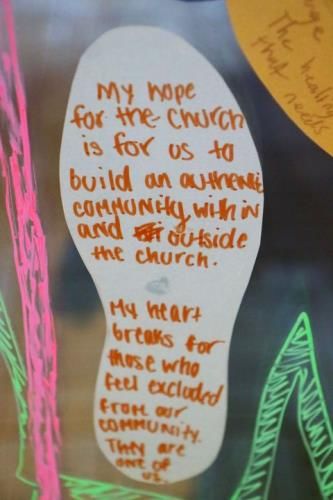 My hope
for the church
is for us to
build an authentic
community within
and outside
the church.
My heart
breaks for
those who
feel excluded
from our
community.
They are
one of
us.
The heal
that needs